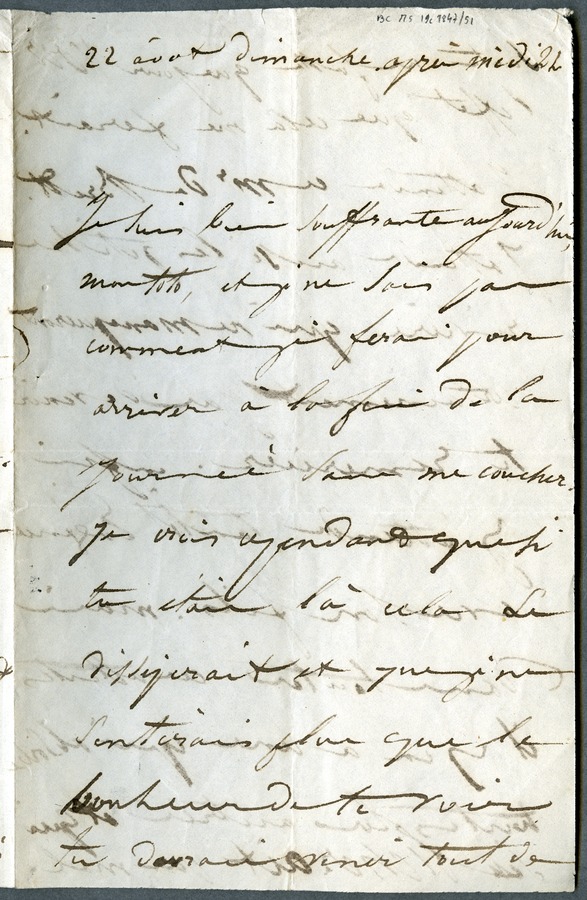 BC MS 19c 1847/51
22 avout dimanche après midi 2h
Je suis bien souffrante aujourd'hui,
mon toto, et je ne sais pas
comment je ferai pour
arriver à la fin de la
journée sans me coucher.
Je crois cependant que si
tu étais là cela se
dissiperait et que je ne
sentirais plus que le
bonheur de te voir
tu devrais venir tout de